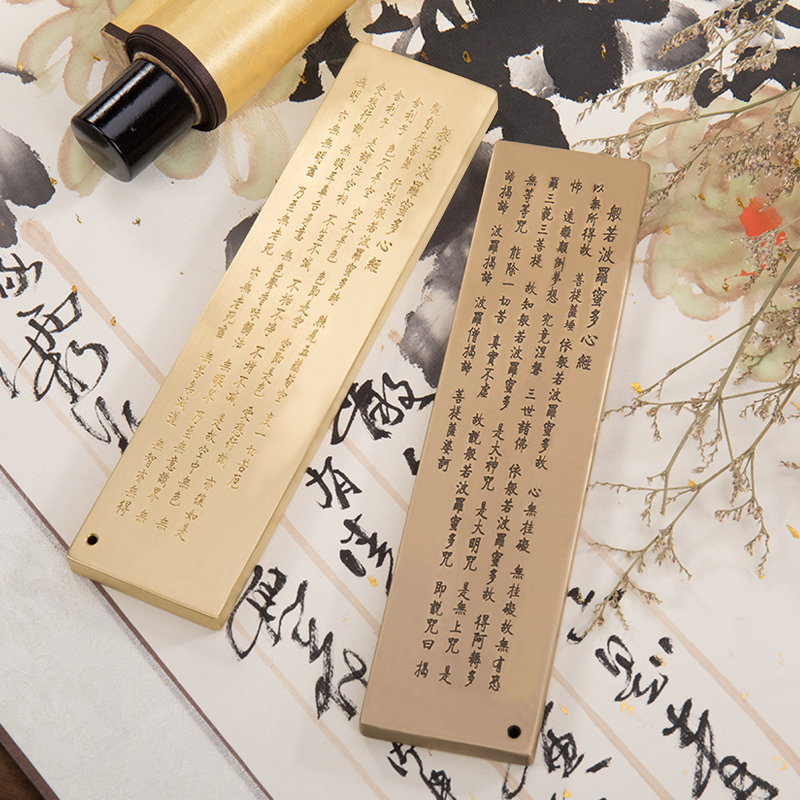 般若波羅蜜多心經
觀自在菩薩 行深般若波羅蜜多時 照見五蘊皆空 度一切苦厄
舍利子 色不異空 空不異色 色即是空 空即是色 受想行識 亦復如是
舍利子 是諸法空相 不生不滅 不垢不淨 不增不減 是故空中無色 無
受想行識 無眼耳鼻舌身意 無色聲香味觸法 無眼界 乃至無意識界 無
無明 亦無無明盡 乃至無老死 亦無老死盡 無苦集滅道 無智亦無得
般若波羅蜜多心經
以無所得故 菩提薩埵 依般若波羅蜜多故 心無桂礙 無桂礙故 無有恐
怖 遠離顛倒夢想 究竟涅槃 三世諸佛 依般若波羅蜜多故 得阿耨多
羅三藐三菩提 故知般若波羅蜜多 是大神咒 是大明咒 是無上咒 是
無等等咒 能除一切苦 真實不虛 故說般若波羅蜜多咒 即說咒曰 揭
諦揭諦 波羅揭諦 波羅僧揭諦 菩提薩婆訶
有